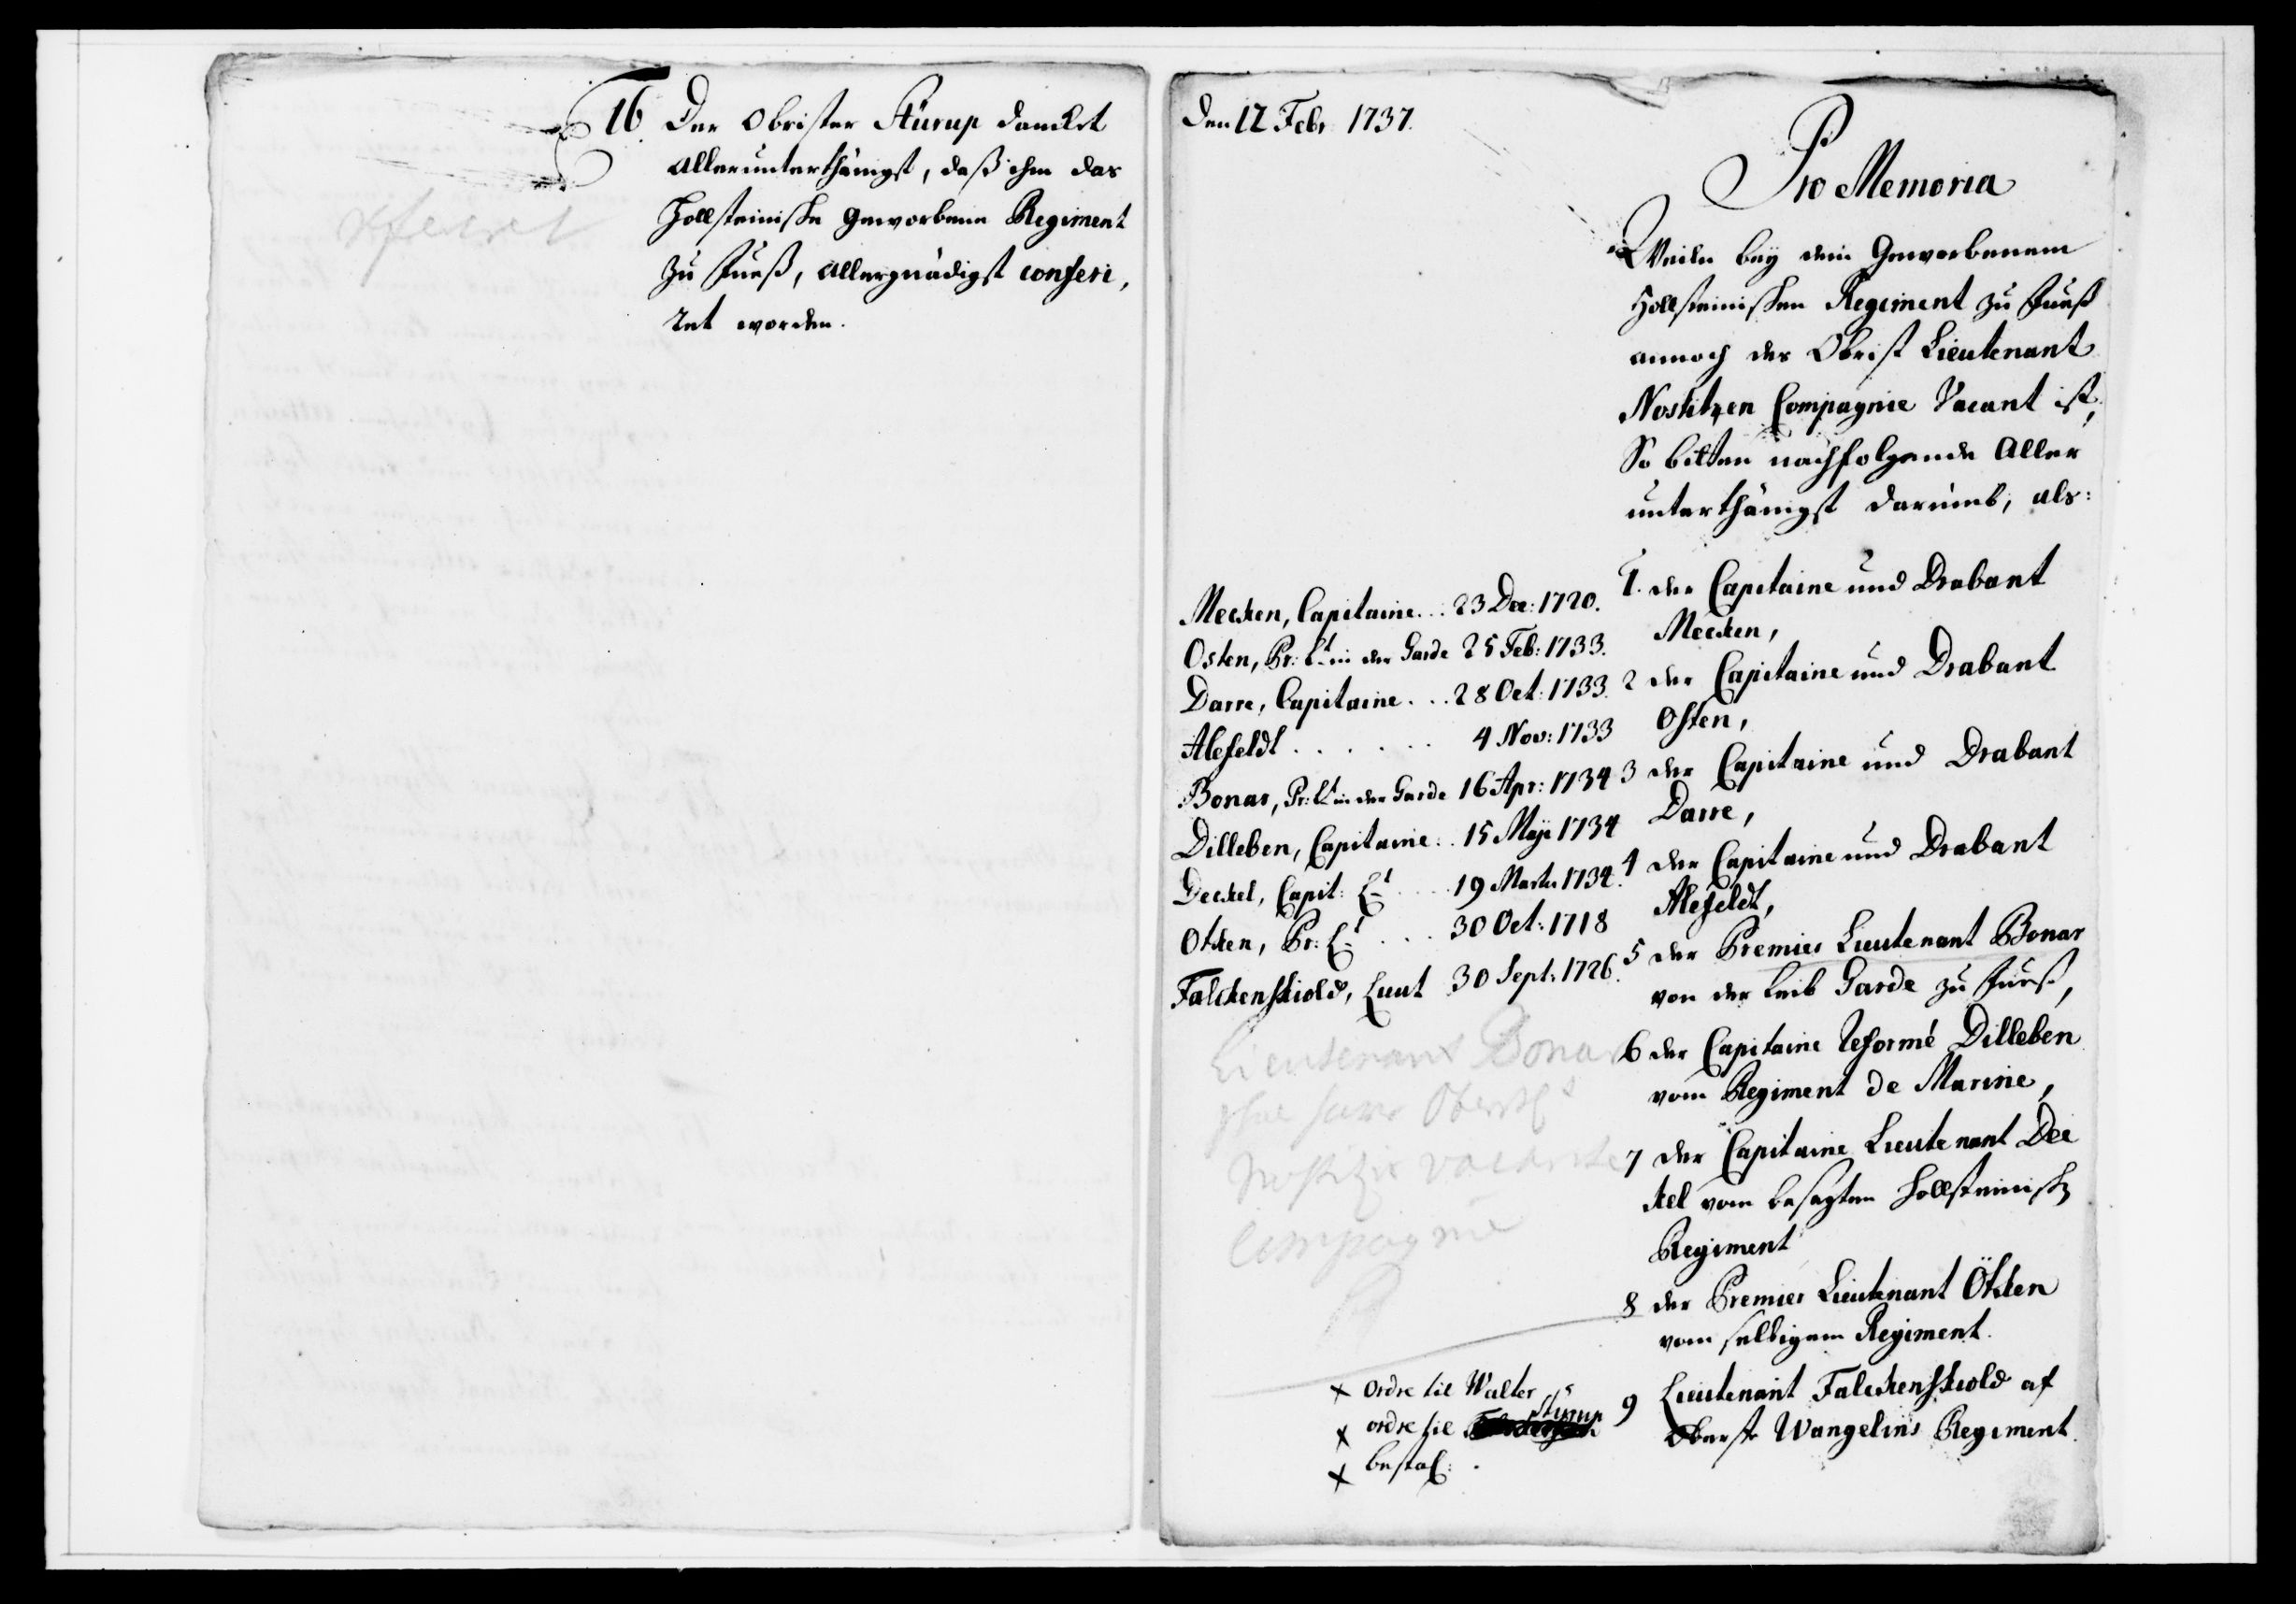 16 Der Obrister Stürup dancket
Allerunterthänigst, daß ihm das
Hollsteinische Geworbene Regiment
zu Fueß, Allergnädigst conferi,
ret worden.
Den 12 Febr 1737.
Pro Memoria
Weilen bey dem Geworbenem
Hollsteinischen Regiment zu Fueß
annoch des Obrist Lieutenant
Nostitzen Compagnie Vacant ist,
So bitten nachfolgende Aller
unterthänigst darumb, als:
1. der Capitaine und Drabant
Mecken,
2 der Capitaine und Drabant
Osten,
3 der Capitaine und Drabant
Darre,
4 der Capitaine und Drabant
Alefeldt,
5 der Premier Lieutenant Bonar
von der Leib Garde zu Fueß,
6 der Capitaine Reformé Dilleben
vom Regiment de Marine,
7 der Capitaine Lieutenant Dec
kel vom besagten Hollsteinisch
Regiment
8 der Premier LieutenantÖtken
vom selbigem Regiment.
9 Lieutenant Falckenskiold af
Oberste Wangelins Regiment.
Mecken, Capitaine... 23 Dec: 1720.
Osten, Pr: Lt in der Garde 25 Feb: 1733.
Darre, Capitaine... 28 Oct: 1733.
Alefeldt....... 4 Nov: 1733
Bonar, Pr: Lt in der Garde 16 Apr: 1734
Dilleben, Capitaine.. 15 Maji 1734
Deckel, Capit: Lt.... 19 Marti 1734.
Otken, Pr: Lt.... 30 Oct: 1718
Falckenskiold, Lieut 30 Sept: 1726.
Lieutenant Bonar
skal have Oberstlt
Nostitzes vacante
Compagnie
x ordre til Walter
x ordre til Stürup
x bestal: